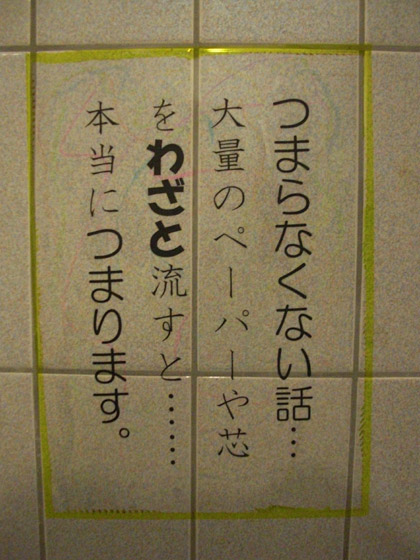 つまらなくない話…
大量のペーパーや芯
をわざと流すと……
本当につまります。